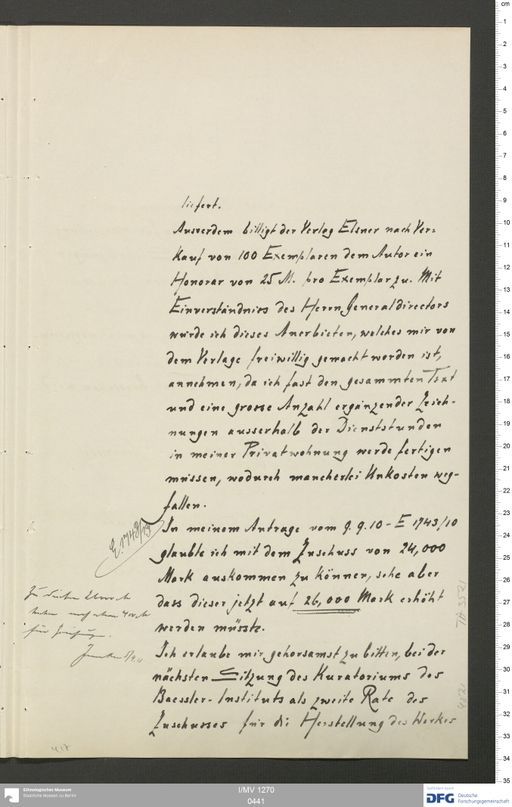 liefert.
Ausserdem billigt der Verlag Elsner nach Ver-
kauf von 100 Exemplaren dem Autor ein
Honorar von 25 M. pro Exemplar zu. Mit
Einverständniss des Herrn Generaldirectors
würde ich dieses Anerbieten, welches mir von
dem Verlage freiwillig gemacht worden ist,
annehmen, da ich fast den gesammten Text
und eine grosse Anzahl ergänzender Zeich-
nungen ausserhalb der Dienststunden
in meiner Privatwohnung werde fertigen
müssen, wodurch mancherlei Unkosten weg-
fallen.
In meinem Antrage vom 9.9.10 - E 1743/10
glaubte ich mit dem Zuschuss von 24,000
Mark auskommen zu können, sehe aber
dass dieser jetzt auf 26,000 Mark erhöht
werden müsste.
Ich erlaube mir gehorsamst zu bitten, bei der
nächsten Sitzung des Kuratoriums des
Baessler-Instituts als zweite Rate des
Zuschusses für die Herstellung des Werkes
I/MV 1270
0441
Ethnologisches Museum
Staatliche Museen zu Berlin
DFG Deutsche
Forschungsgemeinschaft